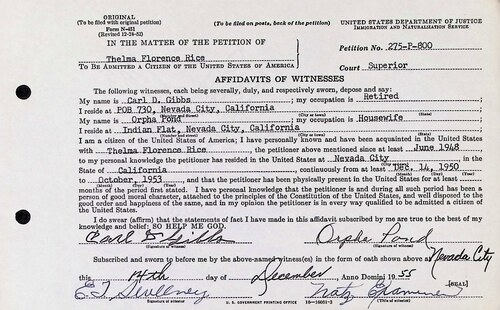 ORIGINAL
(To be filed with original petition)
Form N-451
(Revised 12-24-52)
(To be filed on posts, back of the petition)
UNITED STATES DEPARTMENT OF JUSTICE
IMMIGRATION AND NATURALIZATION SERVICE
IN THE MATTER OF THE PETITION OF
Thelma Florence Rice
TO BE ADMITTED A CITIZEN OF THE UNITED STATES OF AMERICA
Petition No. 275-P-800
Court Superior
AFFIDAVITS OF WITNESSES
The following witnesses, each being severally, duly, and respectively sworn, depose and say:
My name is Carl D. Gibbs; my occupation is Retired
I reside at POB 730, Nevada City, California
My name is Orpha Pond; my occupation is Housewife
I reside at Indian Flat, Nevada City, California
I am a citizen of the United States of America; I have personally known and have been acquainted in the United States
with Thelma Florence Rice the petitioner above mentioned since at least June 1948
to my personal knowledge the petitioner has resided in the United States at Nevada City in the
State of California continuously from at least Dec. 14, 1950
to October, 1953 and that the petitioner has been physically present in the United States for at least
months of the period first stated. I have personal knowledge that the petitioner is and during all such period has been a
person of good moral character, attached to the principles of the Constitution of the United States, and well disposed to the
good order and happiness of the same, and in my opinion the petitioner is in every way qualified to be admitted a citizen of
the United States.
I do swear (affirm) that the statements of fact I have made in this affidavit subscribed by me are true to the best of my
knowledge and belief: SO HELP ME GOD.
Carl D Gibbs
Orpha Pond
(Signature of witness)
(Signature of witness)
Subscribed and sworn to before me by the above-named witness(es) in the form of oath shown above at Nevada City
this 14th day of December Anno Domini 1955
[SEAL]
Natz Examiner
(Signature)
(Title)
U. S. GOVERNMENT PRINTING OFFICE